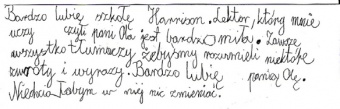 Bardzo lubię szkołę Harrison. Lektor, który mnie
uczy czyli pani Ola jest bardzo miła. Zawsze
wszystko tłumaczy żebyśmy rozumieli niektóre
zwroty i wyrazy. Bardzo lubię panią Olę.
Niechcia łabym w niej nic zmieniać.